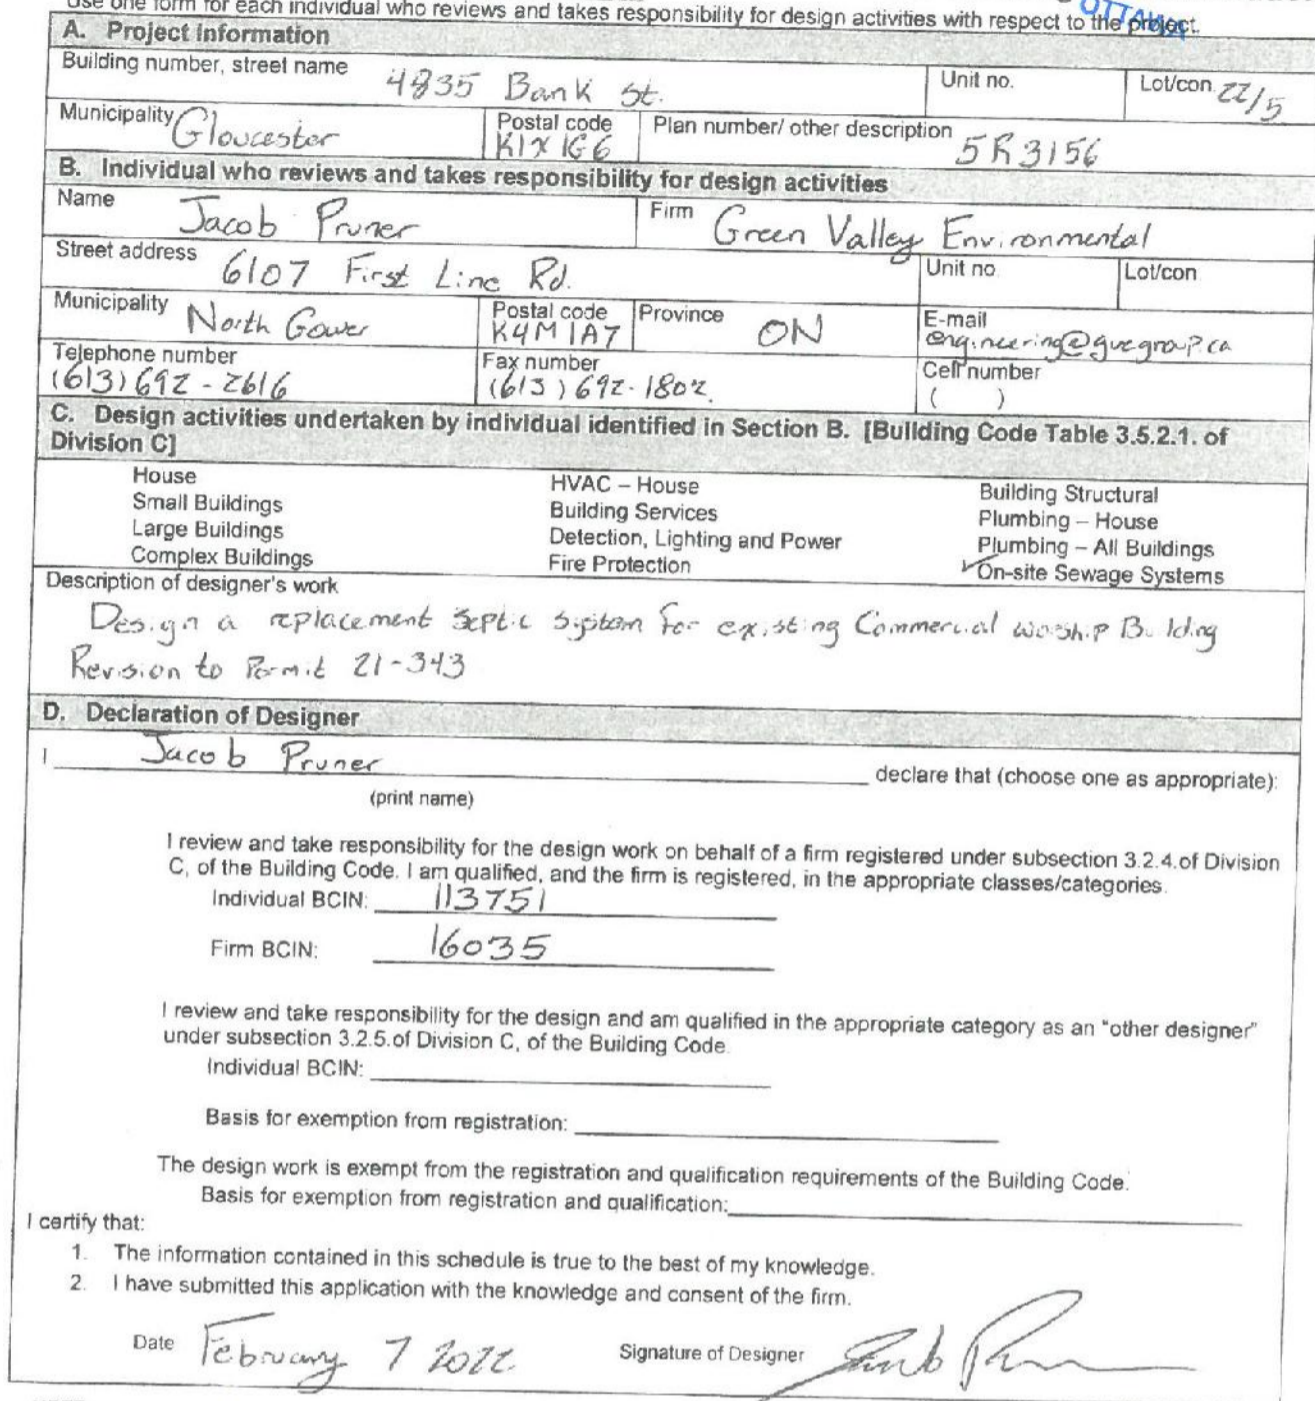 Use one form for each individual who reviews and takes responsibility for design activities with respect to the project.
OTTAWA
A. Project Information
Building number, street name 4835 Bank St.
Unit no.
Lot/con. 22/5
Municipality Gloucester
Postal code K1X 1G6
Plan number/ other description 5R3156
B. Individual who reviews and takes responsibility for design activities
Name Jacob Pruner
Firm Green Valley Environmental
Street address 6107 First Line Rd.
Unit no
Lot/con
Municipality North Gower
Postal code K4M 1A7
Province ON
E-mail engineering@gvegroup.ca
Telephone number (613) 692-2616
Fax number (613) 692-1802
Cell number ( )
C. Design activities undertaken by individual identified in Section B. [Building Code Table 3.5.2.1. of
Division C]
House
Small Buildings
Large Buildings
Complex Buildings
HVAC – House
Building Services
Detection, Lighting and Power
Fire Protection
Building Structural
Plumbing – House
Plumbing – All Buildings
✓ On-site Sewage Systems
Description of designer's work
Design a replacement Septic System for existing Commercial worship Building
Revision to Permit 21-343
D. Declaration of Designer
I Jacob Pruner declare that (choose one as appropriate):
(print name)
I review and take responsibility for the design work on behalf of a firm registered under subsection 3.2.4.of Division
C, of the Building Code. I am qualified, and the firm is registered, in the appropriate classes/categories.
Individual BCIN: 113751
Firm BCIN: 16035
I review and take responsibility for the design and am qualified in the appropriate category as an "other designer"
under subsection 3.2.5.of Division C, of the Building Code.
Individual BCIN:
Basis for exemption from registration:
The design work is exempt from the registration and qualification requirements of the Building Code.
Basis for exemption from registration and qualification:
I certify that:
1. The information contained in this schedule is true to the best of my knowledge.
2. I have submitted this application with the knowledge and consent of the firm.
Date February 7 2022
Signature of Designer